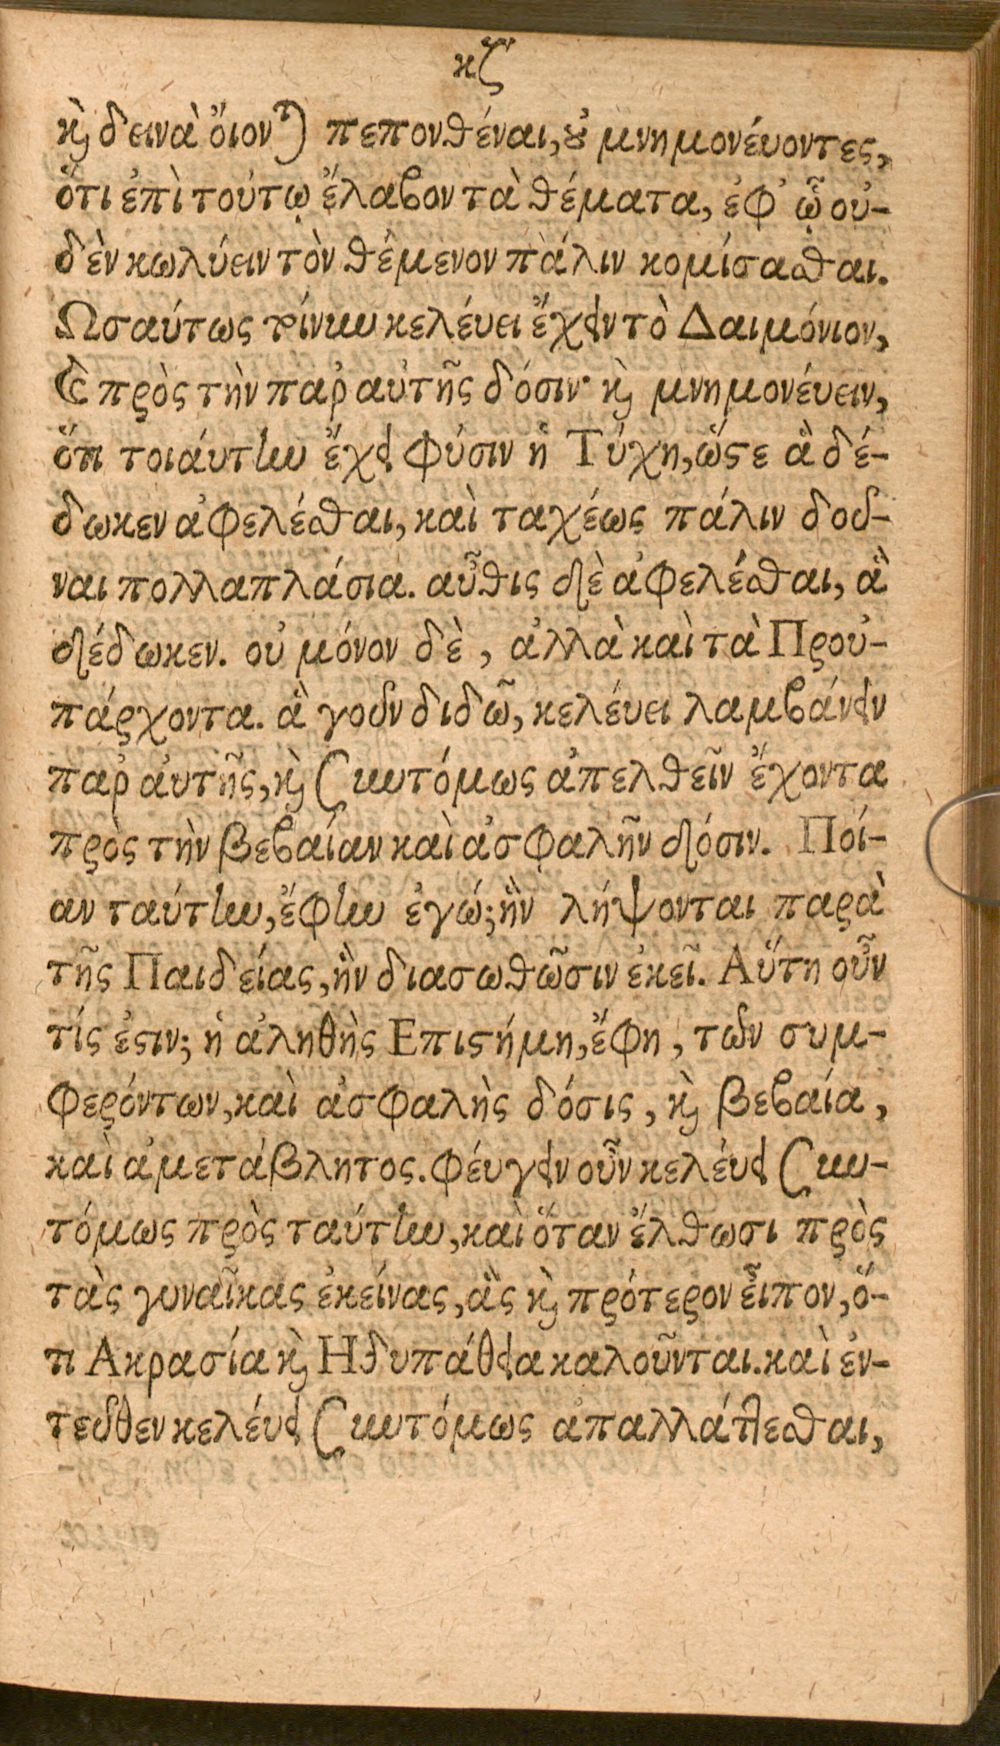 κζ
καὶ δεινὰ ὄιονται πεπονθέναι, οὐ μνημονέυοντες,
ὅτι ἐπὶ τούτῳ ἔλαβον τὰ θέματα, ἐφ᾽ ᾧ οὐ-
δὲν κωλύειν τὸν θέμενον πάλιν κομίσασθαι.
Ωσαύτως τοίνυν κελέυει ἔχειν τὸ Δαιμόνιον,
καὶ πρὸς τὴν παρ᾽ αὐτῆς δόσιν· καὶ μνημονέυειν,
ὅτι τοιάυτην ἔχει φύσιν ἡ Τύχη, ὥστε ἃ δέ-
δωκεν ἀφελέσθαι, καὶ ταχέως πάλιν δοῦ-
ναι πολλαπλάσια. αὖθις δὲ ἀφελέσθαι, ἃ
δέδωκεν. οὐ μόνον δὲ, ἀλλὰ καὶ τὰ Προϋ-
πάρχοντα. ἃ γοῦν διδῶ, κελέυει λαμβάνειν
παρ᾽ ἀυτῆς, καὶ συντόμως ἀπελθεῖν ἔχοντα
πρὸς τὴν βεβαίαν καὶ ἀσφαλῆν δόσιν. Ποί-
αν ταύτην, ἔφην ἐγώ; ἣν λήψονται παρὰ
τῆς Παιδείας, ἢν διασωθῶσιν ἐκεῖ. Αὕτη οὖν
τίς ἐστιν; ἡ ἀληθὴς Επιστήμη, ἔφη, τῶν συμ-
φερόντων, καὶ ἀσφαλὴς δόσις, καὶ βεβαία,
καὶ ἀμετάβλητος. φέυγειν οὖν κελέυει συν-
τόμως πρὸς ταύτην, καὶ ὅταν ἔλθωσι πρὸς
τὰς γυναῖκας ἐκείνας, ἃς καὶ πρότερον εἶπον, ὅ-
τι Ακρασία καὶ Ηδυπάθεια καλοῦνται. καὶ ἐν-
τεῦθεν κελέυει συντόμως ἀπαλλάττεσθαι,